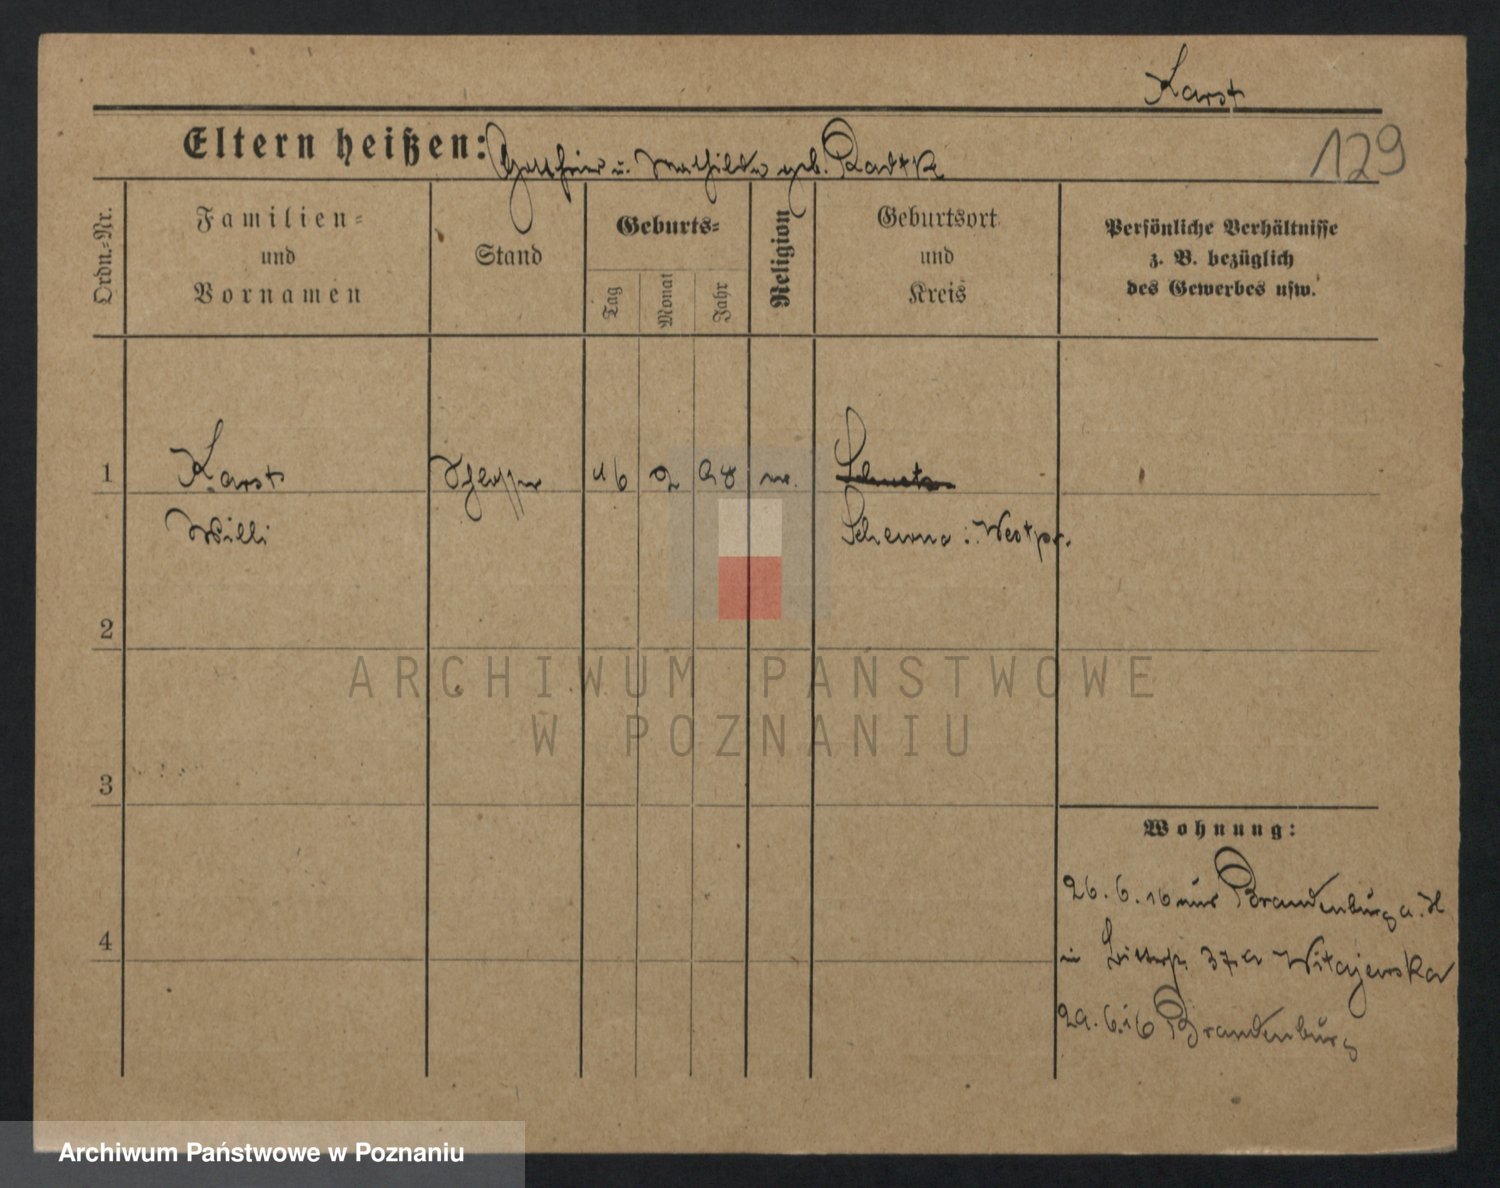 Karst
129
Eltern heißen: Gottfried u. Mathilde geb. Radtke
Ordn.-Nr.
Familien-
und
Vornamen
Stand
Geburts-
Tag
Monat
Jahr
Religion
Geburtsort
und
Kreis
Persönliche Verhältnisse
z. B. bezüglich
des Gewerbes usw.
1
Karst
Schlosser
2
98
Willi
i. Westpr.
2
3
4
Wohnung:
26. 6. 16 aus Brandenburg a. H
in 37a
29. 6. 16 Brandenburg
ARCHIWUM PAŃSTWOWE
W POZNANIU
Archiwum Państwowe w Poznaniu